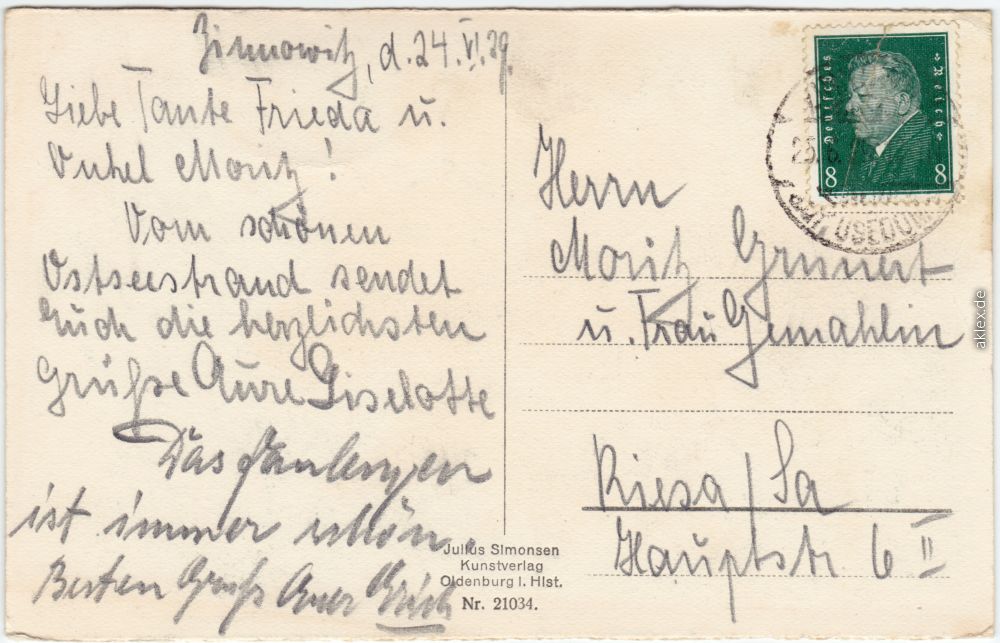 Zinnowitz, d. 24. VI. 29.
Liebe Tante Frieda u.
Onkel Moritz!
Vom schönen
Ostseestrand sendet
Euch die herzlichsten
Grüße Eure Liselotte
Das
ist immer schön.
Besten Gruß Euer Erich
Deutsches Reich
8 8
USEDOM
Herrn
Moritz Grunert
u. Frau Gemahlin
Riesa / Sa
Hauptstr 6 II
Julius Simonsen
Kunstverlag
Oldenburg i. Hlst.
Nr. 21034.
aklex.de